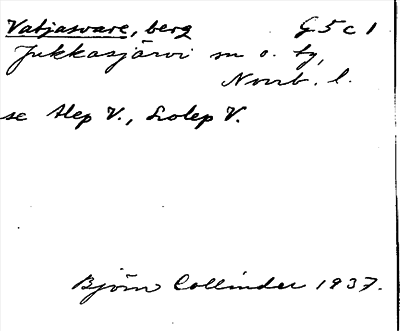 Vatjasvare, berg G5c1
Jukkasjärvi sn o. tg,
Norrb. l.
se Alep V., Luolep V.
Björn Collinder 1937.